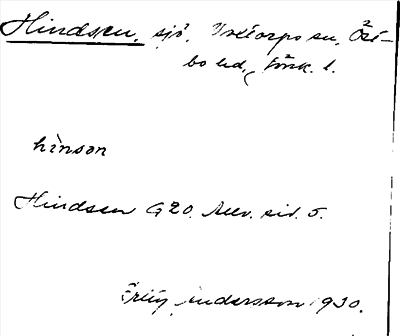 Hindsen, sjö, Voxtorps sn, Öst-
bo hd, Jönk. l.
hinsən
Hindsen G20. Avv. sid. 5.
Erling Andersson 1930.